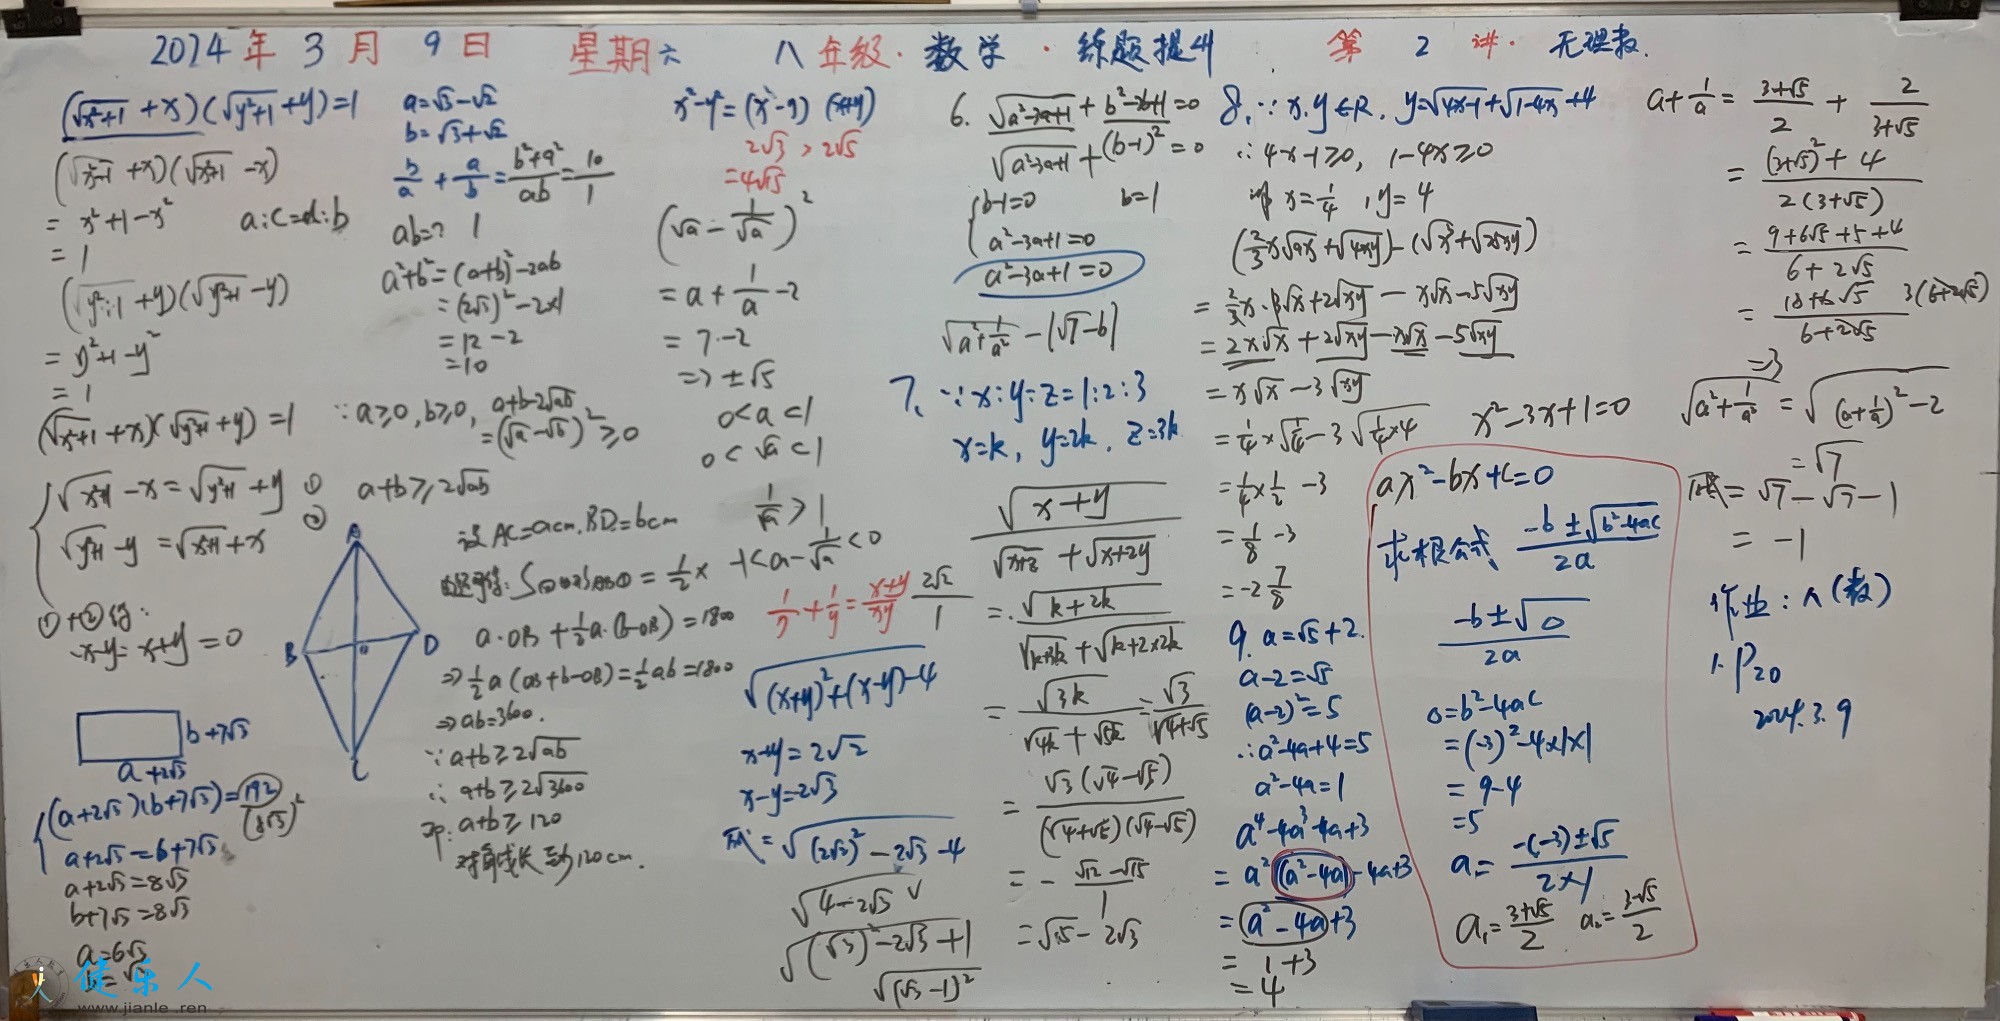 2024年3月9日 星期六 八年级·数学·练题提升 第2讲·无理数.
(√x²+1 + x)(√y²+1 + y)=1
(√x²+1 + x)(√x²+1 - x)
= x²+1-x²
a:c=d:b
= 1
(√y²+1 + y)(√y²+1 - y)
= y²+1-y²
= 1
(√x²+1 + x)(√y²+1 + y)=1
√x²+1 - x = √y²+1 + y ①
√y²+1 - y = √x²+1 + x ②
①+②得:
-x-y= x+y=0
b+7√3
a+2√3
(a+2√3)(b+7√3)=192
(8√3)²
a+2√3=b+7√3
a+2√3=8√3
b+7√3=8√3
a=6√3
a=√3-√2
b=√3+√2
b/a + a/b = b²+a²/ab = 10/1
ab=? 1
a²+b²=(a+b)²-2ab
=(2√3)²-2×1
=12-2
=10
∵a≥0,b≥0, a+b-2√ab
=(√a-√b)²≥0
a+b≥2√ab
A
B
D
C
o
设AC=acm,BD=bcm
a·OB+½a·(b-OB)=1800
⇒½a(OB+b-OB)=½ab=1800
⇒ab=3600.
∵a+b≥2√ab
∴a+b≥2√3600
即:a+b≥120
对角线长至少120cm.
x²-y²=(x-y)(x+y)
2√3 , 2√5
=4√15
(√a - 1/√a)²
= a + 1/a - 2
= 7-2
=> ±√5
0<a<1
0<√a<1
1/√a >1
-1<a-1/√a<0
1/x + 1/y = x+y/xy
2√2/1
√(x+y)²+(x-y)-4
x+y=2√2
x-y=2√3
原式=√(2√2)²-2√3-4
√4-2√3 √
√(√3)²-2√3+1
√(√3-1)²
6. √a²-3a+1 + b²-2b+1=0
√a²-3a+1 + (b-1)²=0
b-1=0 b=1
a²-3a+1=0
a²-3a+1=0
√a²+1/a² - |√7-b|
7、∵x:y:z=1:2:3
x=k, y=2k, z=3k
√x+y / √x+z + √x+2y
= √k+2k / √k+3k + √k+2×2k
= √3k / √4k + √5k = √3 / √4+√5
= √3(√4-√5) / (√4+√5)(√4-√5)
= - √12-√15 / 1
=√15-2√3
8、∵x.y∈R. y=√4x-1+√1-4x+4
∴4x-1≥0, 1-4x≥0
x=1/4 ,y=4
(2/3x√9x+√4xy)-(√x³+√25xy)
= 2/3x·3√x+2√xy - x√x-5√xy
= 2x√x+2√xy-x√x-5√xy
= x√x-3√xy
=1/4×√1/4-3√1/4×4
=1/4×1/2 -3
=1/8 -3
=-2 7/8
9. a=√5+2.
a-2=√5
(a-2)²=5
∴a²-4a+4=5
a²-4a=1
a⁴-4a³-4a+3
= a²(a²-4a)-4a+3
= a²-4a+3
= 1+3
= 4
x²-3x+1=0
ax²-bx+c=0
求根公式 -b±√b²-4ac / 2a
-b±√△ / 2a
△=b²-4ac
=(-3)²-4×1×1
= 9-4
=5
a= -(-3)±√5 / 2×1
a₁=3+√5/2 a₂=3-√5/2
a+1/a = 3+√5/2 + 2/3+√5
= (3+√5)²+4 / 2(3+√5)
= 9+6√5+5+4 / 6+2√5
= 18+6√5 / 6+2√5 3(6+2√5)
=3
√a²+1/a² = √(a+1/a)²-2
=√7
原式=√7-√7-1
= -1
作业:八(教)
1. P20
2024.3.9
健乐人
www.jianle.ren